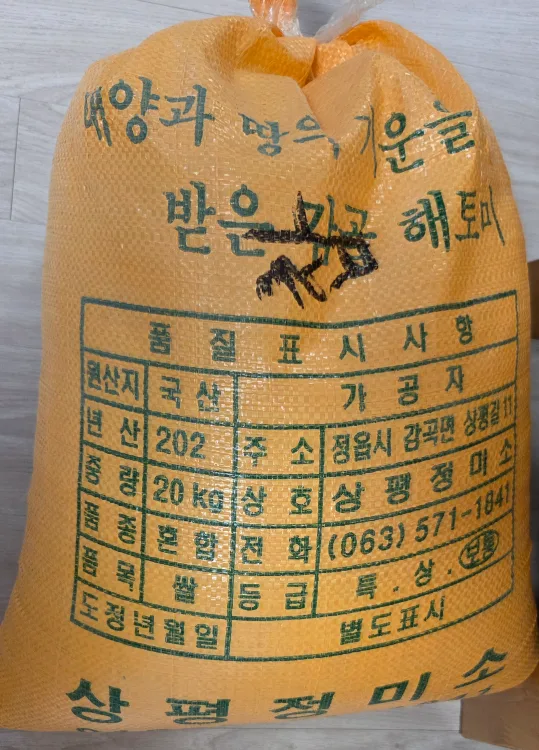 태양과 땅의 기운을
받은 감곡 해토미
품질표시사항
원산지 국산 가공자
년산 202 주소 정읍시 감곡면 상평길 11
중량 20 kg 상호 상평정미소
품종 혼합 전화 (063) 571-1841
품목 쌀 등급 특.상.보통
도정년월일 별도표시
상평정미소